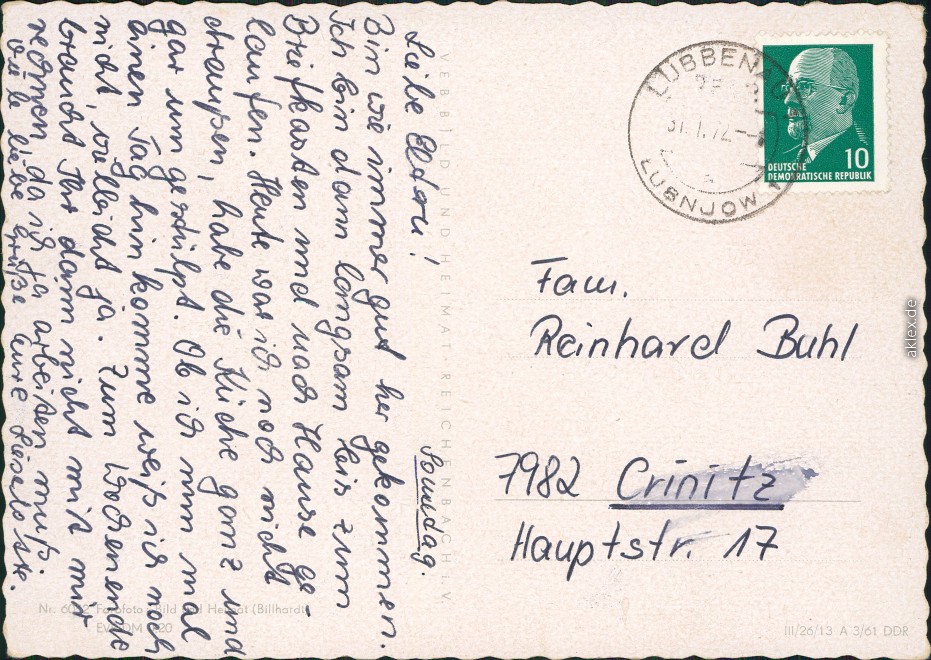 Sonntag.
Liebe Eltern!
Bin wie immer gut her gekommen.
Ich bin dann langsam bis zum
Briefkasten und nach Hause ge-
laufen. Heute war ich noch nicht
draußen, habe die Küche ganz und
gar um gestülpt. Ob ich nun mal
einen Tag hin komme weiß ich noch
nicht, vielleicht ja. Zum Wochenende
braucht Ihr dann nicht mit mir
rechnen, da ich ja arbeiten muß.
Viele liebe Grüße eure Lieselotte.
VEB BILD UND HEIMAT · REICHENBACH I. V.
Nr. 60 2 Farbfoto: Bild und Heimat (Billhardt)
EVP DM 0,20
LÜBBENAU
31.1.72.
LUBNJOW
10
DEUTSCHE
DEMOKRATISCHE REPUBLIK
Fam.
Reinhard Buhl
7982 Crinitz
Hauptstr. 17
III/26/13 A 3/61 DDR
aklex.de